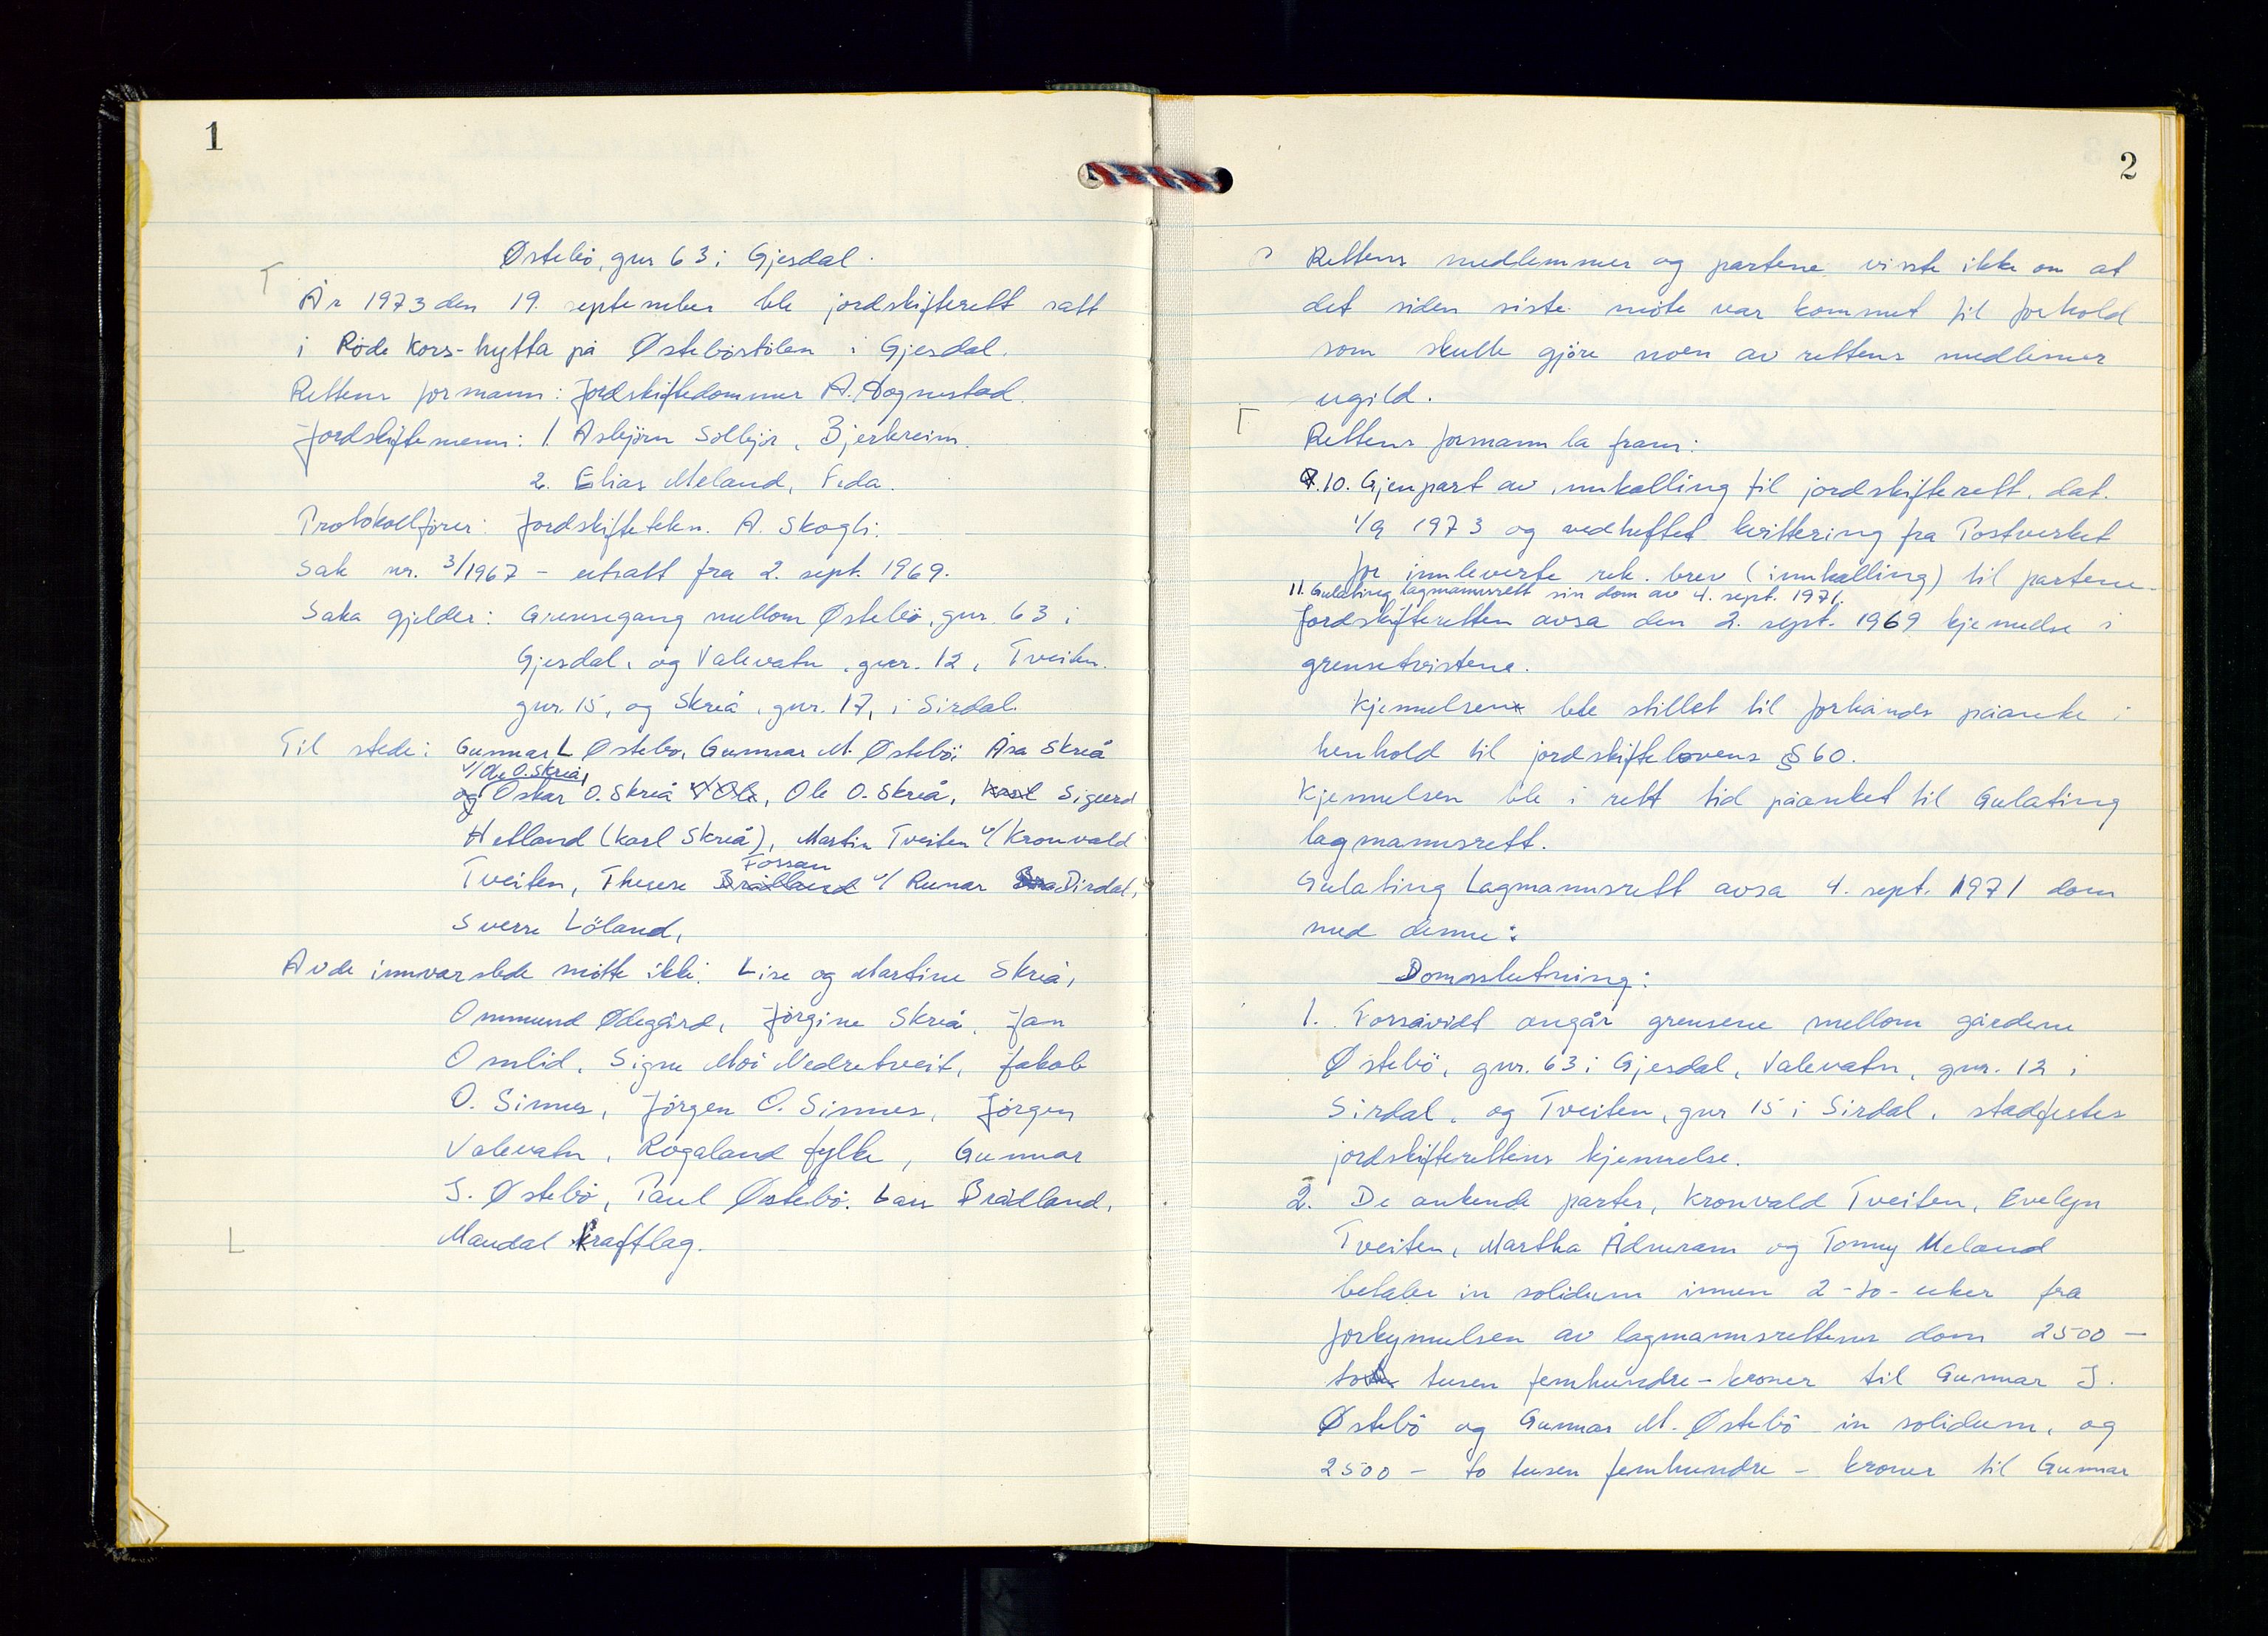 1
Østebö, gnr 63 i Gjesdal.
År 1973 den 19. september ble jordskifterett satt
i Röde Kors-hytta på Östeböstölen i Gjesdal.
Rettens formann: Jordskiftedommer A. Dognestad.
Jordskiftemenn: 1. Asbjörn Solbjör, Bjerkreim.
2. Elias Meland, Feda.
Protokollförer: Jordskiftetekn. A. Skogli.
Sak nr. 3/1967 - utsatt fra 2. sept. 1969.
Saka gjelder: Grensegang mellom Østebö, gnr. 63 i
Gjesdal, og Valevatn, gnr. 12, Tveiten.
gnr. 15, og Skreå, gnr. 17, i Sirdal.
Til stede: Gunnar L Østebö, Gunnar M. Østebö, Åsa Skreå
v/Ole O. Skreå,
og Oskar O. Skreå v/Ole, Ole O. Skreå, Karl Sigurd
Hetland (Karl Skreå), Martin Tveiten v/Kronvald
Fossan
Tveiten, Therese Brådland v/ Runar Dirdal,
Sverre Löland,
Av de innvarslede mötte ikke: Lise og Martine Skreå,
Ommund Ødegård, Jörgine Skreå, Jan
Omlid, Signe Moi Nedretveit, Jakob
O. Sinnes, Jörgen O. Sinnes, Jörgen
Valevatn, Rogaland fylke, Gunnar
S. Østebö, Paul Østebö. Lars Brådland,
Mandal Kraftlag.
2
Rettens medlemmer og partene visste ikke om at
det siden siste möte var kommet til forhold
som skulle gjöre noen av rettens medlemer
ugild.
Rettens formann la fram:
10. Gjenpart av innkalling til jordskifterett, dat.
1/9 1973 og vedheftet kvittering fra Postverket
for innleverte rek. brev (innkalling) til partene.
11. Gulating lagmannsrett sin dom av 4. sept. 1971.
Jordskifteretten avsa den 2. sept. 1969 kjennelse i
grensetvistene.
Kjennelsen ble stillet til forhånds påanke i
henhold til jordskiftelovens § 60.
Kjennelsen ble i rett tid påanket til Gulating
lagmannsrett.
Gulating Lagmannsrett avsa 4. sept. 1971 dom
med denne:
Domsslutning:
1. Forsåvidt angår grensene mellom gårdene
Østebö, gnr. 63 i Gjesdal, Valevatn, gnr. 12 i
Sirdal, og Tveiten, gnr 15 i Sirdal, stadfestes
jordskifterettens kjennelse.
2. De ankende parter, Kronvald Tveiten, Evelyn
Tveiten, Martha Ådneram og Tonny Meland
betaler in solidum innen 2 -to- uker fra
forkynnelsen av lagmannsrettens dom 2500 -
to tusen femhundre - kroner til Gunnar S.
Østebö og Gunnar M. Østebö in solidum, og
2500 - to tusen femhundre - kroner til Gunnar